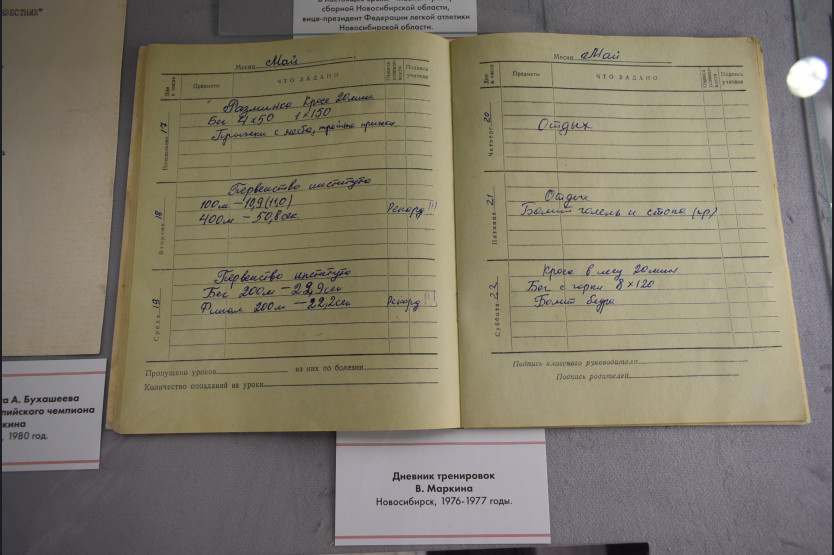 ВЕСТНИК"
сборной Новосибирской области,
вице-президент Федерации легкой атлетики
Новосибирской области.
Месяц Май
Дни и числа
Предметы
ЧТО ЗАДАНО
Подпись учителя
Понедельник 17
Разминка Кросс 20 мин
Бег 4х50 1х150
Прыжки с места, тройные прыжки.
Вторник 18
Первенство института
100м – 10,9 (11,0)
400м – 50,8 сек Рекорд
Среда 19
Первенство института
Бег 200м – 22,9 сек
Финал 200м – 22,2 сек Рекорд
Пропущено уроков из них по болезни
Количество опозданий на уроки
Месяц Май
Дни и числа
Предметы
ЧТО ЗАДАНО
Подпись учителя
Четверг 20
Отдых
Пятница 21
Отдых
Болит голень и стопа (пр)
Суббота 22
Кросс в лесу 20 мин.
Бег с горки 8х120
Болит бедро
Подпись классного руководителя
Подпись родителей
та А. Бухашеева
пийского чемпиона
ркина
, 1980 год.
Дневник тренировок
В. Маркина
Новосибирск, 1976-1977 годы.